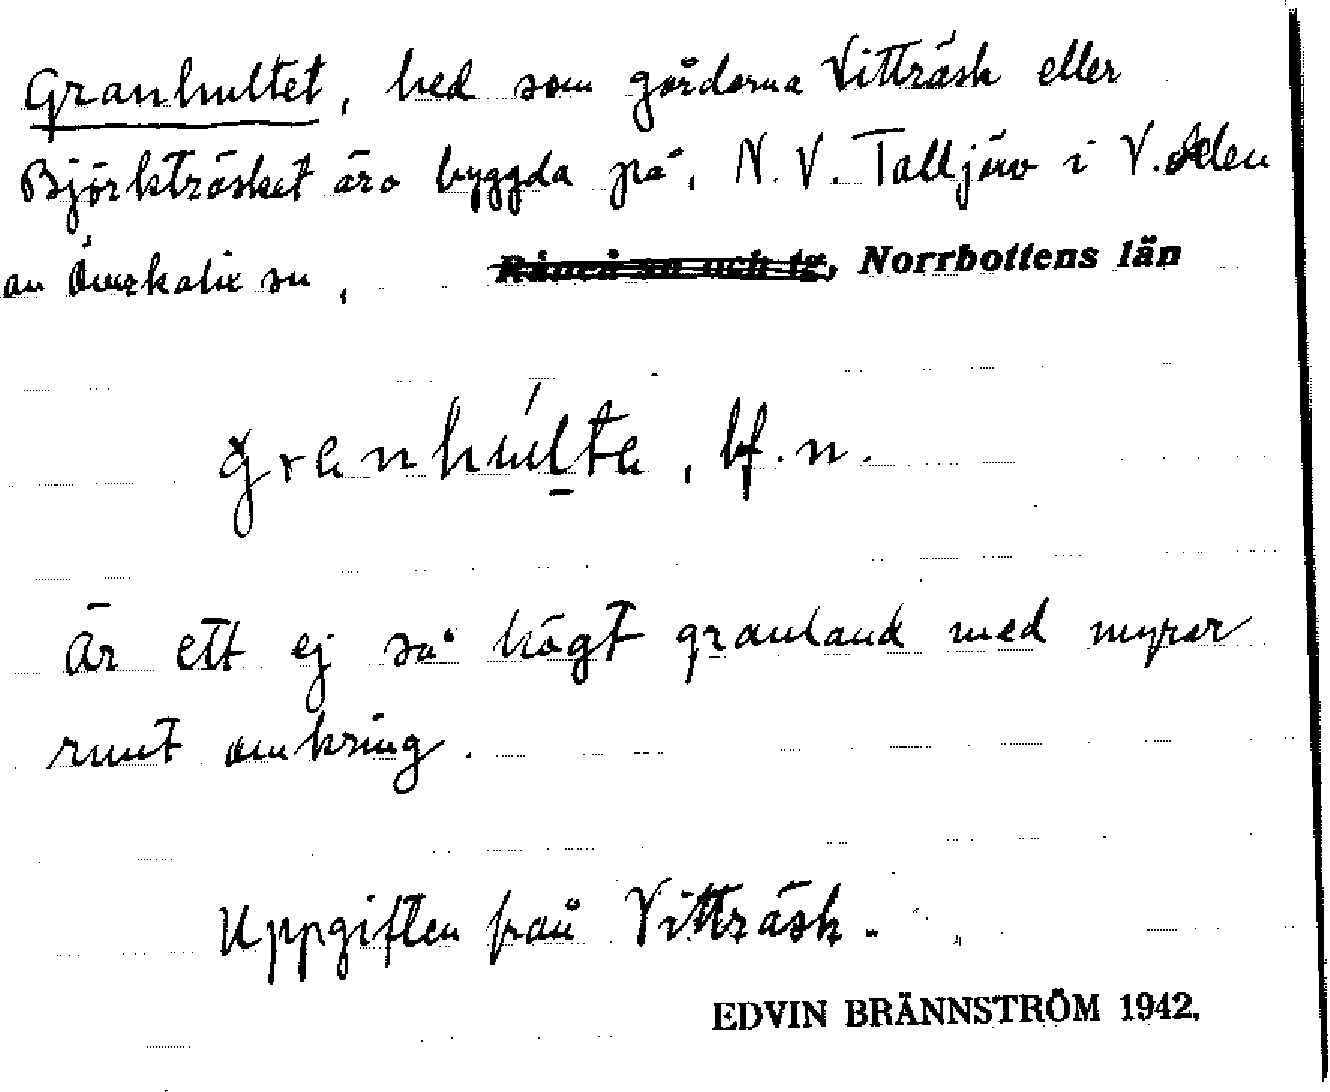 Granhultet, hed som gårdarna Vitträsk eller
Björkträsket äro byggda på, N.V. Talljärv i V.delen
av Överkalix sn, Råneå sn och tg, Norrbottens län
granhúlta, bf. n.
Är ett ej så högt granland med myrar
runt omkring.
Uppgiften från Vitträsk.
EDVIN BRÄNNSTRÖM 1942.